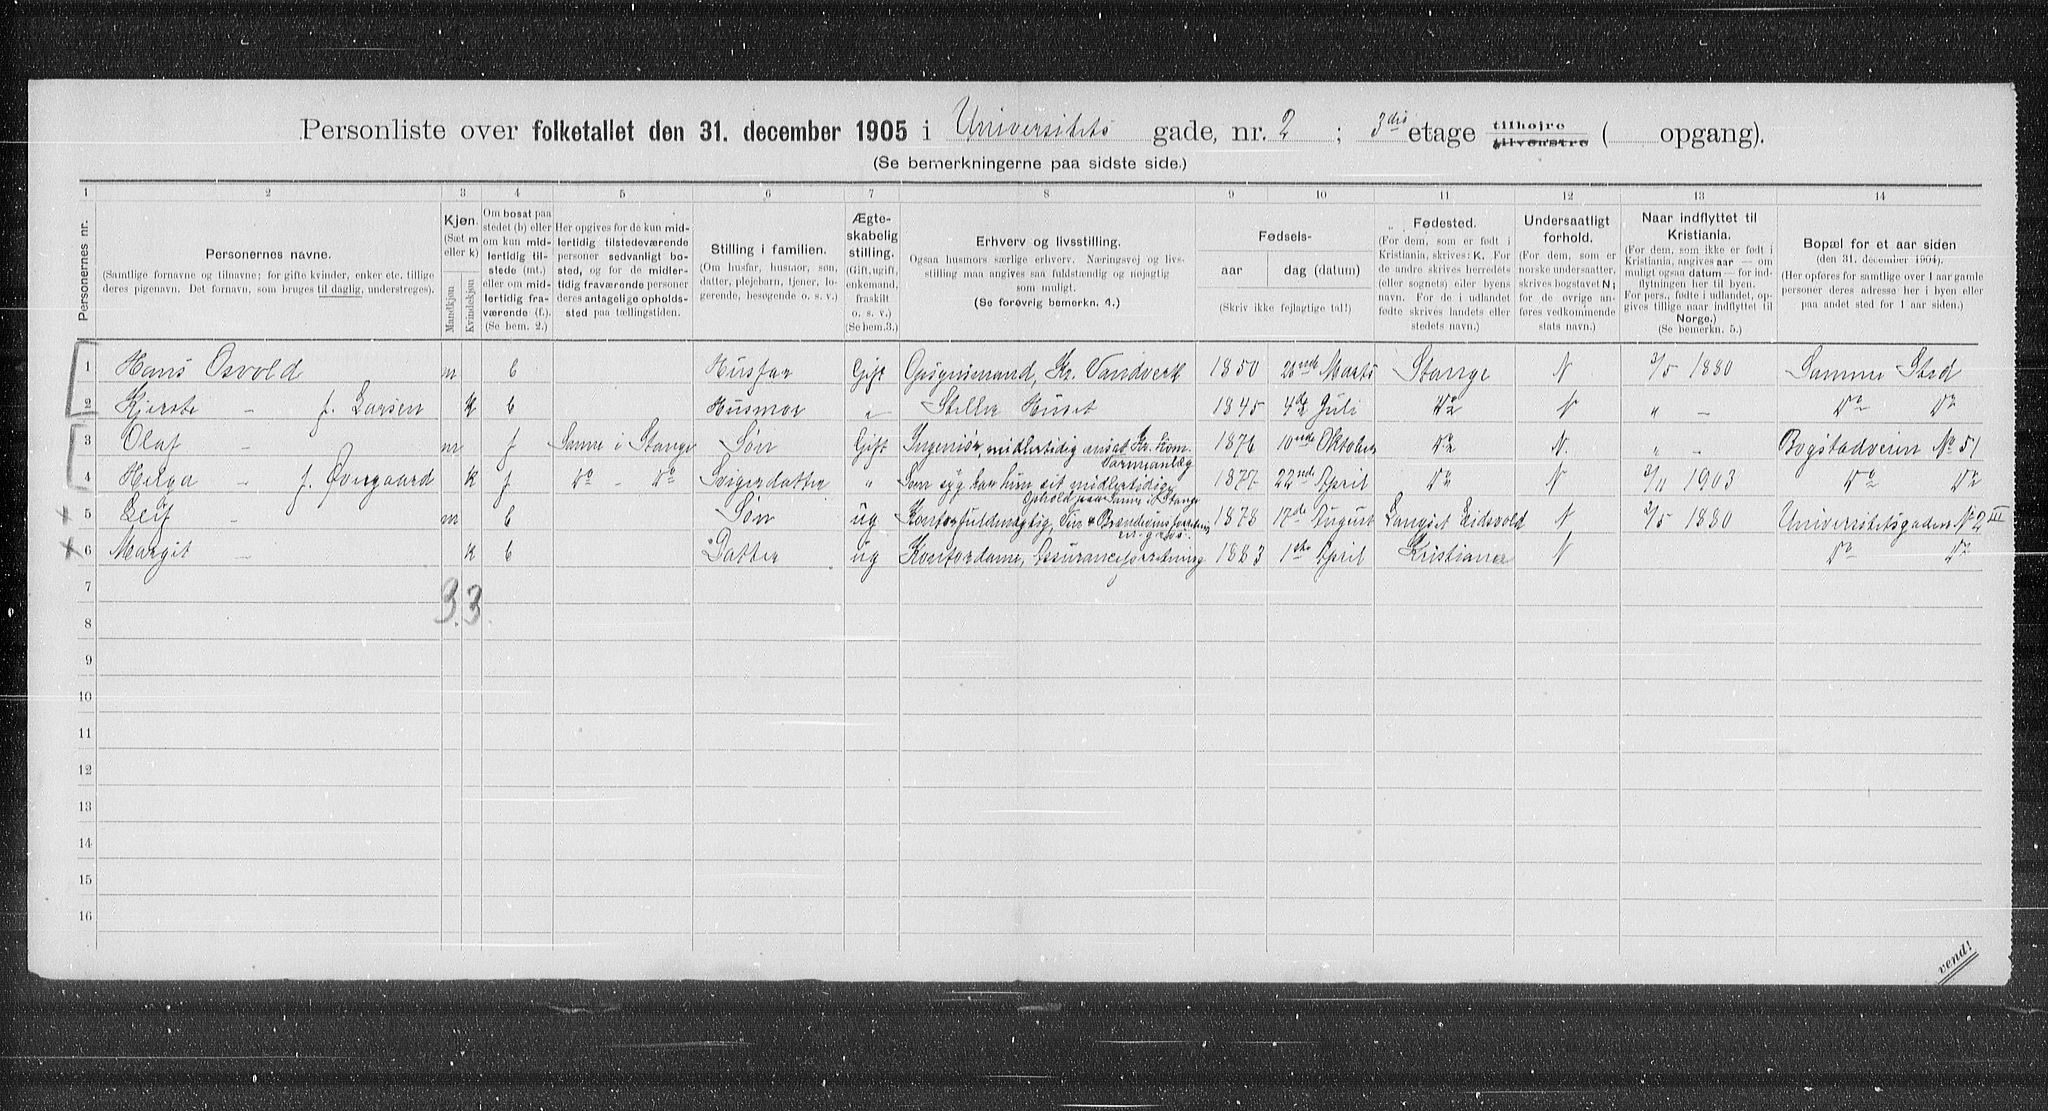 Personliste over folketallet den 31. december 1905 i Universitets gade, nr. 2 ; 3die etage tilhøjre tilvenstre ( opgang).
(Se bemerkningerne paa sidste side.)
1 2 3 4 5 6 7 8 9 10 11 12 13 14
Personernes nr.
Personernes navne.
(Samtlige fornavne og tilnavne; for gifte kvinder, enker etc. tillige
deres pigenavn. Det fornavn, som bruges til daglig, understreges).
Kjøn.
(Sæt m
eller k)
Mandkjøn
Kvindekjøn
Om bosat paa
stedet (b) eller
om kun mid-
lertidig til-
stede (mt.)
eller om mid-
lertidig fra-
værende (f.).
(Se bem. 2.)
Her opgives for de kun mid-
lertidig tilstedeværende
personer sedvanlig bo-
sted, og for de midler-
tidig fraværende personer
deres antagelige opholds-
sted paa tællingstiden.
Stilling i familien.
(Om husfar, husmor, søn,
datter, plejebarn, tjener, lo-
gerende, besøgende o. s. v.)
Ægte-
skabelig
stilling.
(Gift, ugift,
enkemand,
fraskilt
o. s. v.)
(Se bem.3.)
Erhverv og livsstilling.
Ogsaa husmors særlige erhverv. Næringsvej og livs-
stilling maa angives saa fuldstændig og nøjagtig
som muligt.
(Se forøvrig bemerkn. 4.)
Fødsels-
aar
dag (datum)
(Skriv ikke fejlagtige tal!)
Fødested.
(For dem, som er født i
Kristiania, skrives: K. For
de andre skrives herredets
(eller sognets) eller byens
navn. For de i udlandet
fødte skrives landets eller
stedets navn.)
Undersaatligt
forhold.
(For dem, som er
norske undersaatter,
skrives bogstavet N;
for de øvrige an-
føres vedkommende
stats navn.)
Naar indflyttet til
Kristiania.
(For dem, som ikke er født i
Kristiania, angives aar — om
mulig ogsaa datum — for ind-
flytningen her til byen.
For pers., fødte i udlandet, op-
gives tillige naar indflyttet til
Norge.)
(Se bemerkn. 5.)
Bopæl for et aar siden
(den 31. december 1904).
(Her opføres for samtlige over 1 aar gamle
personer deres adresse her i byen eller
paa andet sted for 1 aar siden.)
1 Hans Osvold m b Husfar Gift Opsynsmand, Kr. Vandverk 1850 26nde Marts Stange N 3/5 1880 Samme Sted
2 Kjersti - f. Larsen k b Husmor " Steller Huset 1845 4de Juli Do N " - Do Do
3 Olaf - m f Sanne i Stange Søn Gift Ingeniør, midlertidig ansat Kr. Kom. 1876 10nde Oktober Do N. " - Bogstadveien No 51
Varmeanlæg
4 Helga - f. Øvergaard k f Do - Do Svigerdatter " Som syg har hun sit midlertidige 1877 22nde April Do N 2/11 1903 Do Do
Ophold paa Sanne i Stange
5 Leif - m b Søn ug Kontorfuldmægtig, Vin & Brændevinsforretning 1878 17de August Langset Eidsvold N 3/5 1880 Universitetsgaden No 2 III
en gros.
6 Margit - k b Datter ug Kontordame, Assuranceforretning 1883 1ste April Kristiania N Do Do
7
3 3
8
9
10
11
12
13
14
15
16
vend!